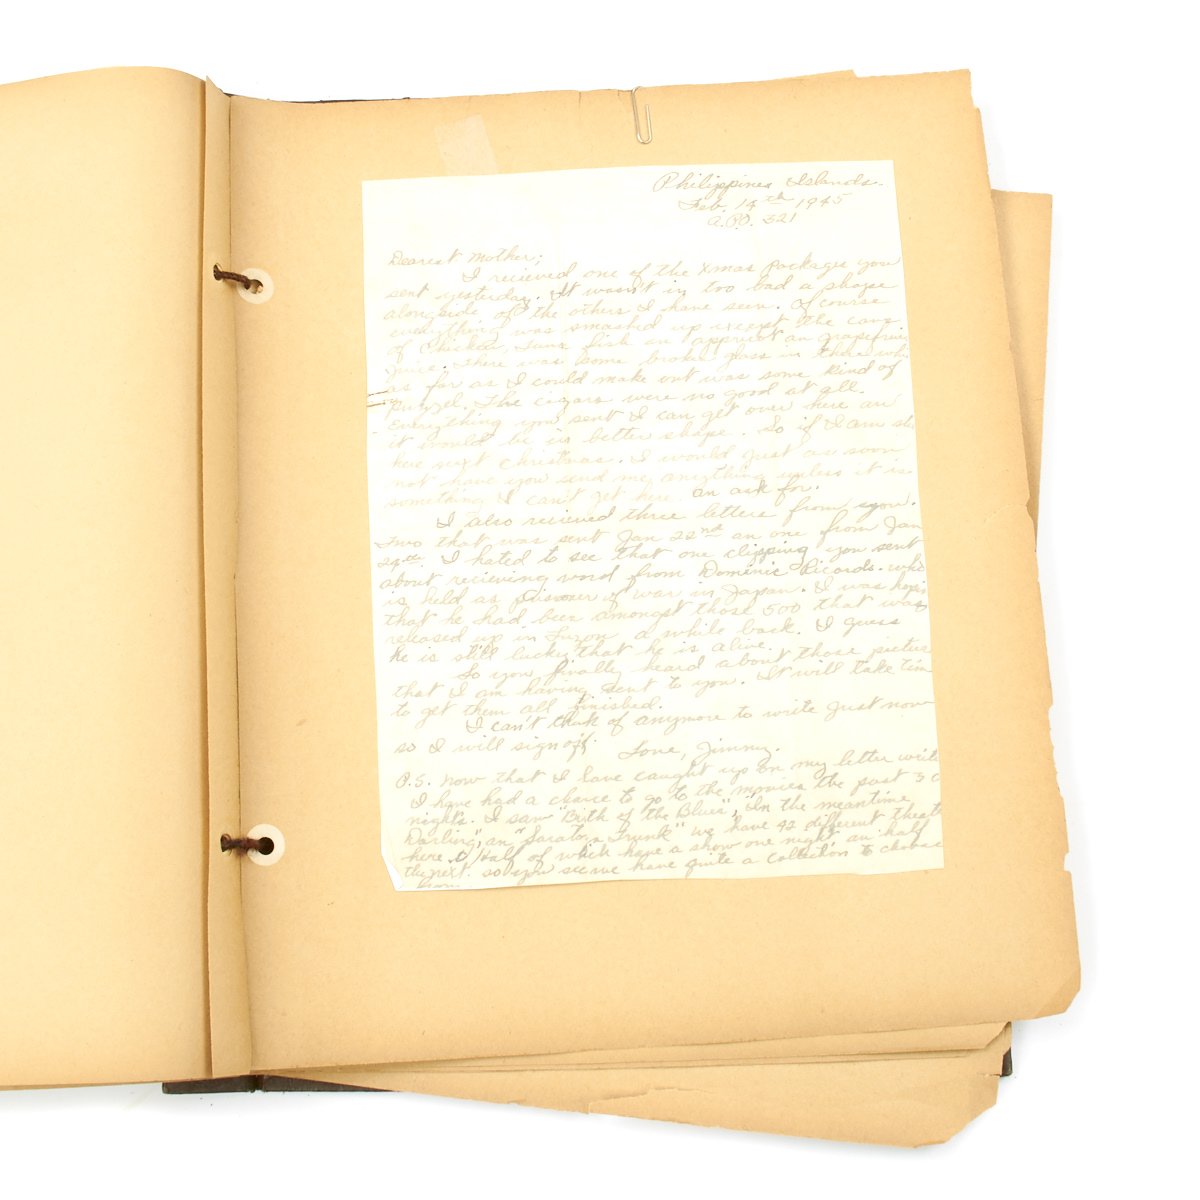 Philippines Islands.
Feb. 14th 1945
A.P.O. 321
Dearest Mother;
I recieved one of the Xmas packages you
sent yesterday. It wasn't in too bad a shape
along side of the others I have seen. Of course
everything was smashed up except the cans
of chicken, tuna fish an appricot an grapefruit
juice. There was some broken glass in there
as far as I could make out was some kind of
puzzel. The cigars were no good at all.
Everything you sent I can get over here an
it would be in better shape. So if I am
here next Christmas. I would just as soon
not have you send me anything unless it is
something I can't get here an ask for.
I also recieved three letters from you.
Two that was sent Jan 22nd an one from Jan
24th. I hated to see that one clipping you sent
about recieving word from Dominic Ricards. who
is held as prisoner of war in Japan. I was hoping
that he had been amongst those 500 that was
released up in Luzon a while back. I guess
he is still lucky that he is alive.
So you finally heard about those pictures
that I am having sent to you. It will take time
to get them all finished.
I can't think of anymore to write just now
so I will sign off. Love, Jimmy.
P.S. Now that I have caught up on my letter
I have had a chance to go to the movies the past 3
nights. I saw "Birth of the Blues", "In the meantime
Darling", an "Saratoga Trunk" we have 42 different
here. Half of which have a show one night an half
the next. so you see we have quite a collection to choose
from